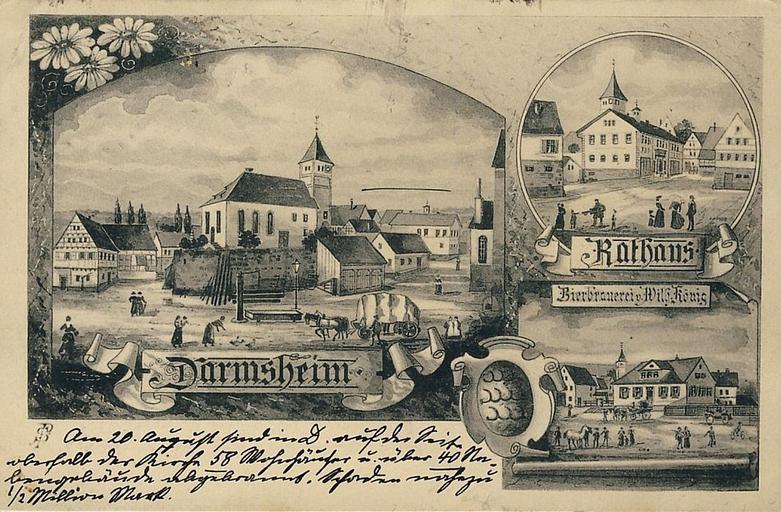 Darmsheim
Rathaus
Bierbrauerei v. Wilh. König
Am 20. August sind in D. auf der Seite
oberhalb der Kirche 58 Wohnhäuser u. über 40 Ne-
bengebäude abgebrannt. Schaden nahezu
1/2 Million Mark.